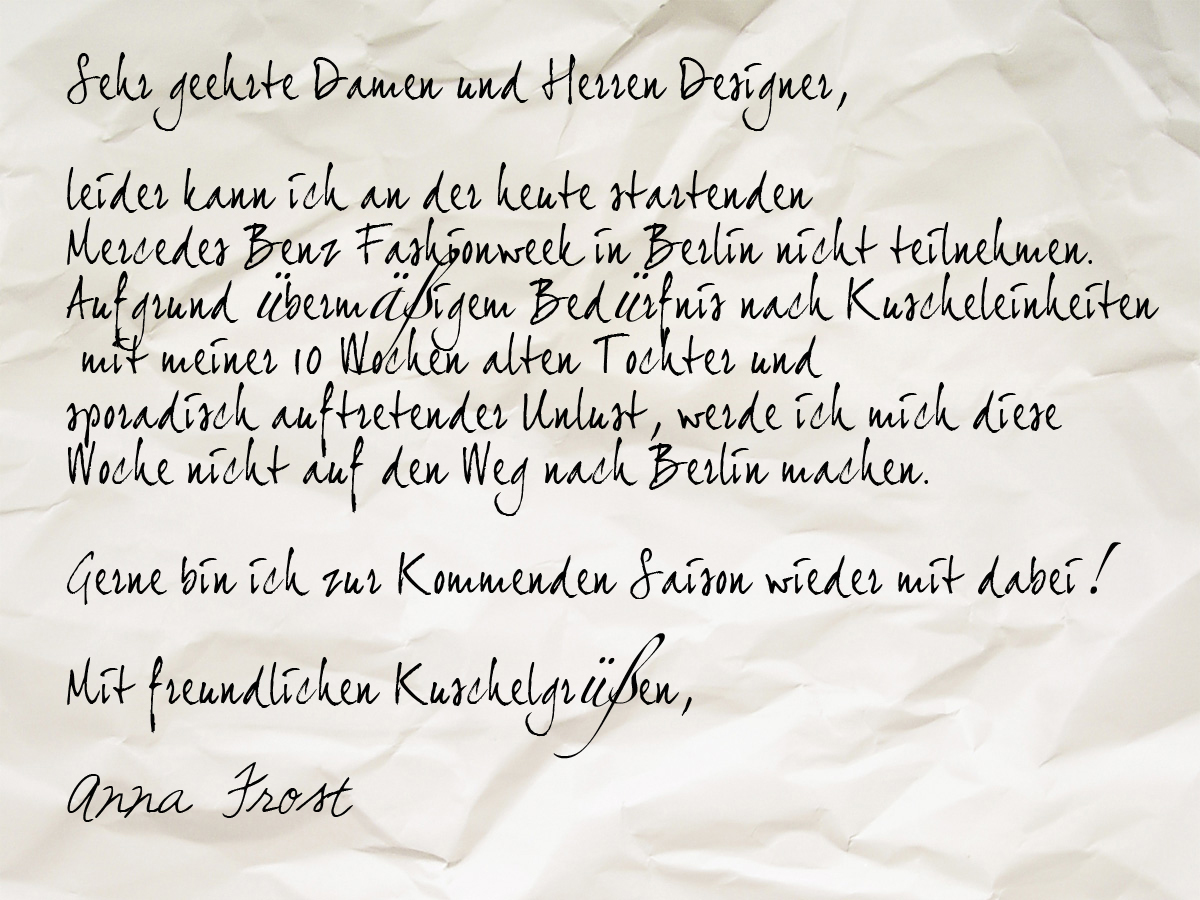 Sehr geehrte Damen und Herren Designer,
leider kann ich an der heute startenden
Mercedes Benz Fashionweek in Berlin nicht teilnehmen.
Aufgrund übermäßigem Bedürfnis nach Kuscheleinheiten
mit meiner 10 Wochen alten Tochter und
sporadisch auftretender Unlust, werde ich mich diese
Woche nicht auf den Weg nach Berlin machen.
Gerne bin ich zur Kommenden Saison wieder mit dabei!
Mit freundlichen Kuschelgrüßen,
Anna Frost